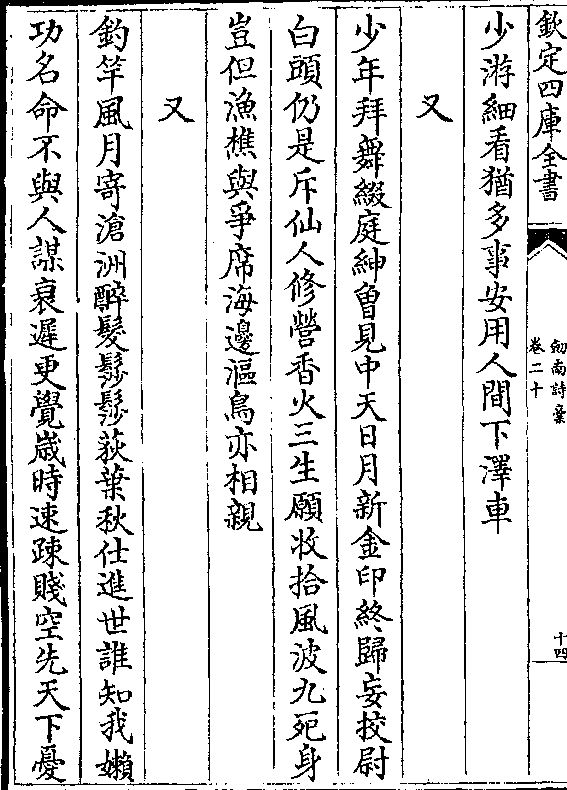 欽定四庫全書
劍南詩稾
卷二十
十四
少游細看猶多事安用人間下澤車
又
少年拜舞綴庭紳曽見中天日月新金印終歸妄挍尉
白頭仍是斥仙人修營香火三生願收拾風波九死身
豈但漁樵與爭席海邊漚鳥亦相親
又
釣竿風月寄滄洲醉髮鬖鬖荻葉秋仕進世誰知我嬾
功名命不與人謀衰遲更覺歳時速疎賤空先天下憂